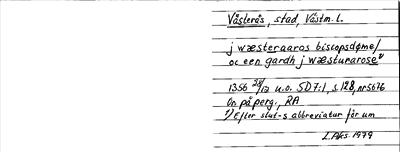 Västerås, stad, Västm. l.
j wæsteraaros biscopsdøme/
oc een gardh j wæsturarose¹⁾
1356 28/12 u.o. SD 7:1, s. 128, nr 5676
Or på perg., RA
¹⁾ Efter slut-s abbreviatur för um
1979